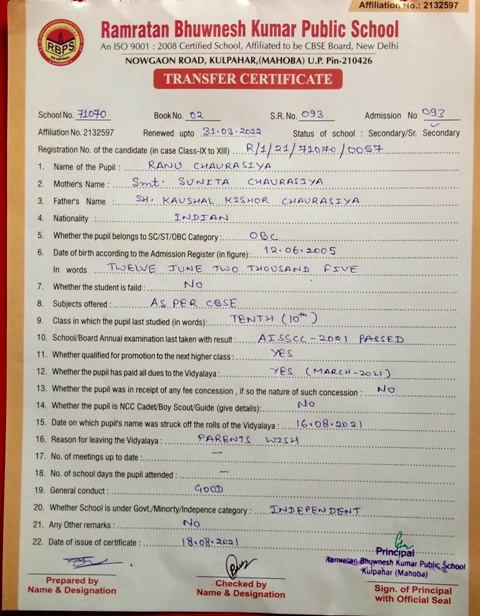 Affiliation No.: 2132597
RBPS
Ramratan Bhuwnesh Kumar Public School
An ISO 9001 : 2008 Certified School, Affiliated to be CBSE Board, New Delhi
NOWGAON ROAD, KULPAHAR,(MAHOBA) U.P. Pin-210426
TRANSFER CERTIFICATE
School No. 71070 Book No. 02 S.R. No. 093 Admission No 093
Affiliation No. 2132597 Renewed upto 31.03.2022 Status of school : Secondary/Sr. Secondary
Registration No. of the candidate (in case Class-IX to XIII) R/1/21/71070/0057
1. Name of the Pupil : RANU CHAURASIYA
2. Mother's Name : Smt. SUNITA CHAURASIYA
3. Father's Name : SH. KAUSHAL KISHOR CHAURASIYA
4. Nationality : INDIAN
5. Whether the pupil belongs to SC/ST/OBC Category : OBC
6. Date of birth according to the Admission Register (in figure): 12.06.2005
In words TWELVE JUNE TWO THOUSAND FIVE
7. Whether the student is faild : NO
8. Subjects offered : AS PER CBSE
9. Class in which the pupil last studied (in words): TENTH (10th)
10. School/Board Annual examination last taken with result : AISSCC-2021 PASSED
11. Whether qualified for promotion to the next higher class : YES
12. Whether the pupil has paid all dues to the Vidyalaya : YES (MARCH-2021)
13. Whether the pupil was in receipt of any fee concession , if so the nature of such concession : NO
14. Whether the pupil is NCC Cadet/Boy Scout/Guide (give details): NO
15. Date on which pupil's name was struck off the rolls of the Vidyalaya : 16.08.2021
16. Reason for leaving the Vidyalaya : PARENTS WISH
17. No. of meetings up to date : -
18. No. of school days the pupil attended : -
19. General conduct : GOOD
20. Whether School is under Govt./Minorty/Indepence category : INDEPENDENT
21. Any Other remarks : NO
22. Date of issue of certificate : 18.08.2021
Principal
Ramratan Bhuwnesh Kumar Public School
Kulpahar (Mahoba)
Prepared by
Name & Designation
Checked by
Name & Designation
Sign. of Principal
with Official Seal